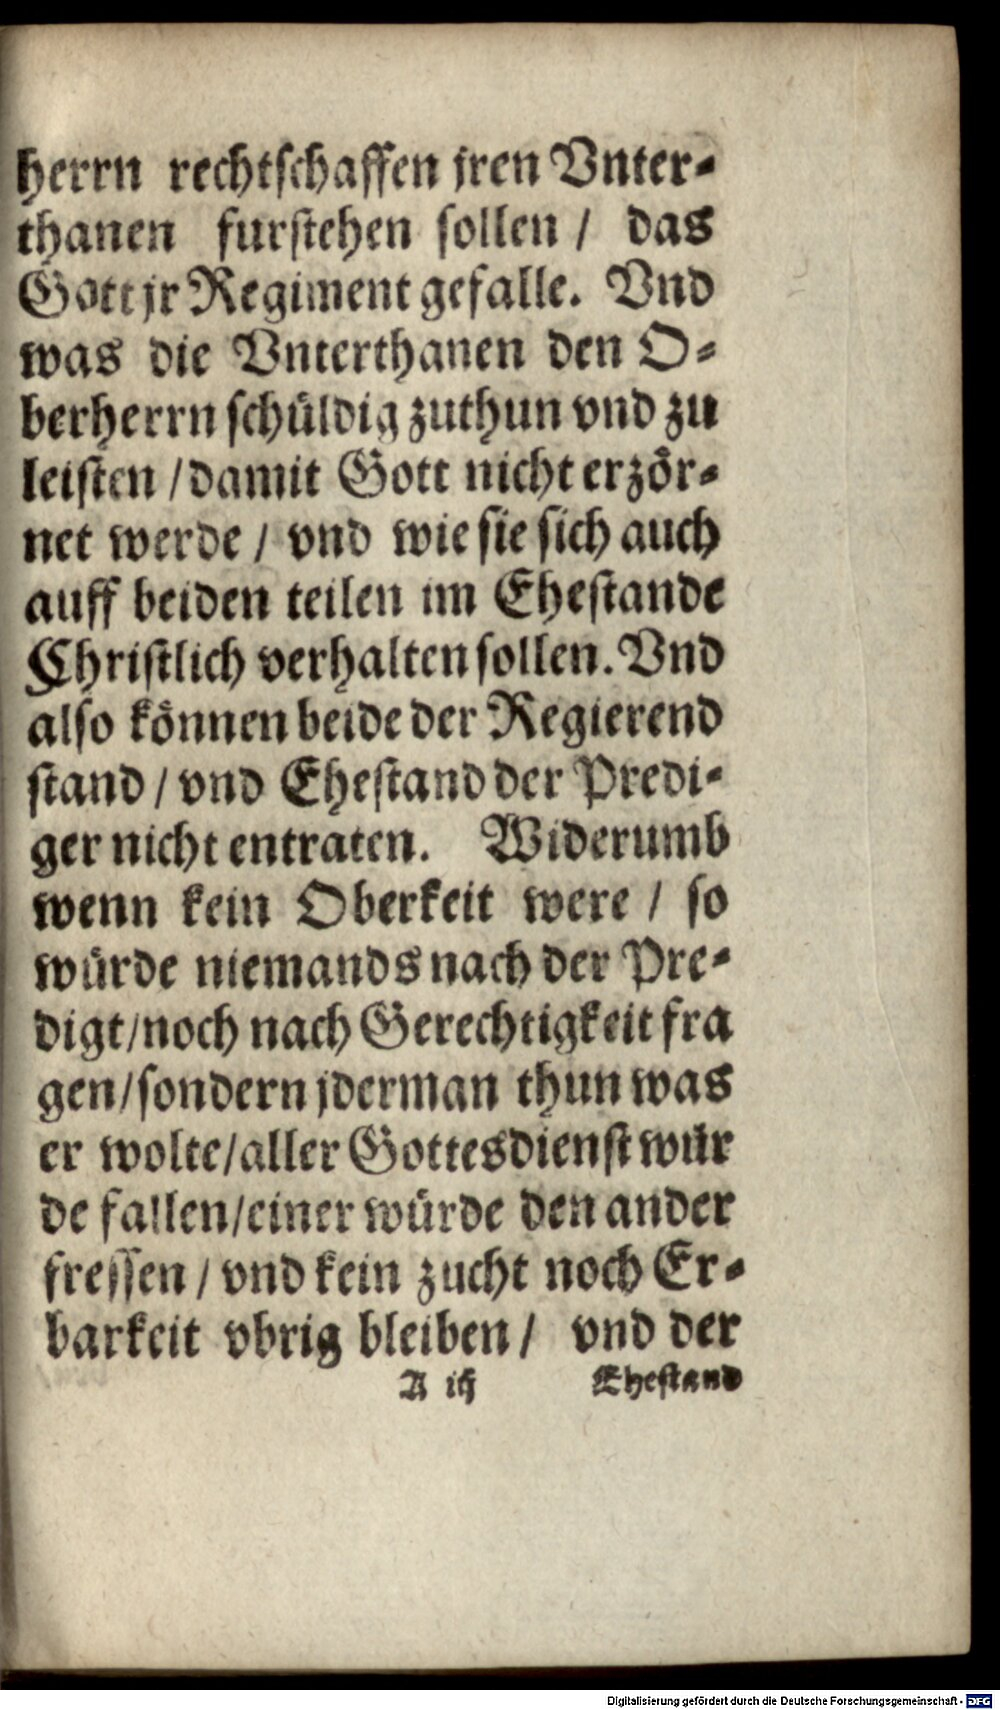 herrn rechtschaffen jren Vnter-
thanen furstehen sollen / das
Gott jr Regiment gefalle. Vnd
was die Vnterthanen den O-
berherrn schüldig zuthun vnd zu
leisten / damit Gott nicht erzör-
net werde / vnd wie sie sich auch
auff beiden teilen im Ehestande
Christlich verhalten sollen. Vnd
also können beide der Regierend
stand / vnd Ehestand der Predi-
ger nicht entraten. Widerumb
wenn kein Oberkeit were / so
würde niemands nach der Pre-
digt / noch nach Gerechtigkeit fra
gen / sondern jderman thun was
er wolte / aller Gottesdienst wür
de fallen / einer würde den ander
fressen / vnd kein zucht noch Er-
barkeit vbrig bleiben / vnd der
A iij Ehestand
Digitalisierung gefördert durch die Deutsche Forschungsgemeinschaft - DFG